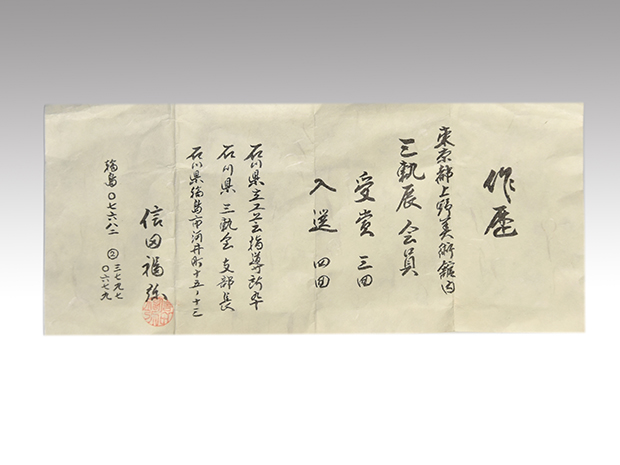 作歴
東京都上野美術館内
三軌展会員
受賞 三回
入選 四回
石川県立工芸指導所卒
石川県三軌会支部長
石川県輪島市河井町十五ノ十三
信田福弥
輪島〇七六八二 ②三七九七
〇六七九